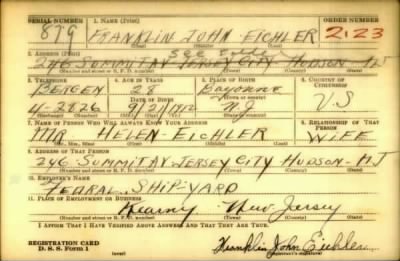 SERIAL NUMBER 1. NAME (Print) ORDER NUMBER
879 FRANKLIN JOHN EICHLER 2123
(First) (Middle) (Last)
2. ADDRESS (Print) see
246 SUMMIT AV JERSEY CITY HUDSON-NJ
(Number and street or R. F. D. number) (Town) (County) (State)
3. TELEPHONE 4. AGE IN YEARS 5. PLACE OF BIRTH 6. COUNTRY OF CITIZENSHIP
BERGEN 28 Bayonne
DATE OF BIRTH
4-2826 N.J. U S
(Exchange) (Number) (Mo.) (Day) (Yr.) (Town or county) (State or country)
7. NAME OF PERSON WHO WILL ALWAYS KNOW YOUR ADDRESS 8. RELATIONSHIP OF THAT PERSON
MR HELEN-EICHLER WIFE
(Mr., Mrs., Miss) (First) (Middle) (Last)
9. ADDRESS OF THAT PERSON
246 SUMMIT AV JERSEY CITY HUDSON-NJ
(Number and street or R. F. D. number) (Town) (County) (State)
10. EMPLOYER'S NAME
FEDRAL SHIP-YARD
11. PLACE OF EMPLOYMENT OR BUSINESS
Kearny New Jersey
(Number and street or R. F. D. number) (Town) (County) (State)
I AFFIRM THAT I HAVE VERIFIED ABOVE ANSWERS AND THAT THEY ARE TRUE.
REGISTRATION CARD
D. S. S. Form 1 (over) Franklin John Eichler
(Registrant's signature)